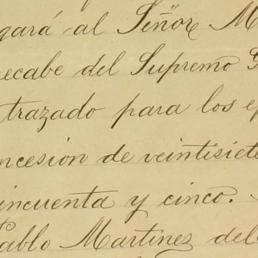 gará al Señor M
recabe del Supremo G
trazado para los ef
ncesion de veintisiete
incuenta y cinco.
Pablo Martinez del